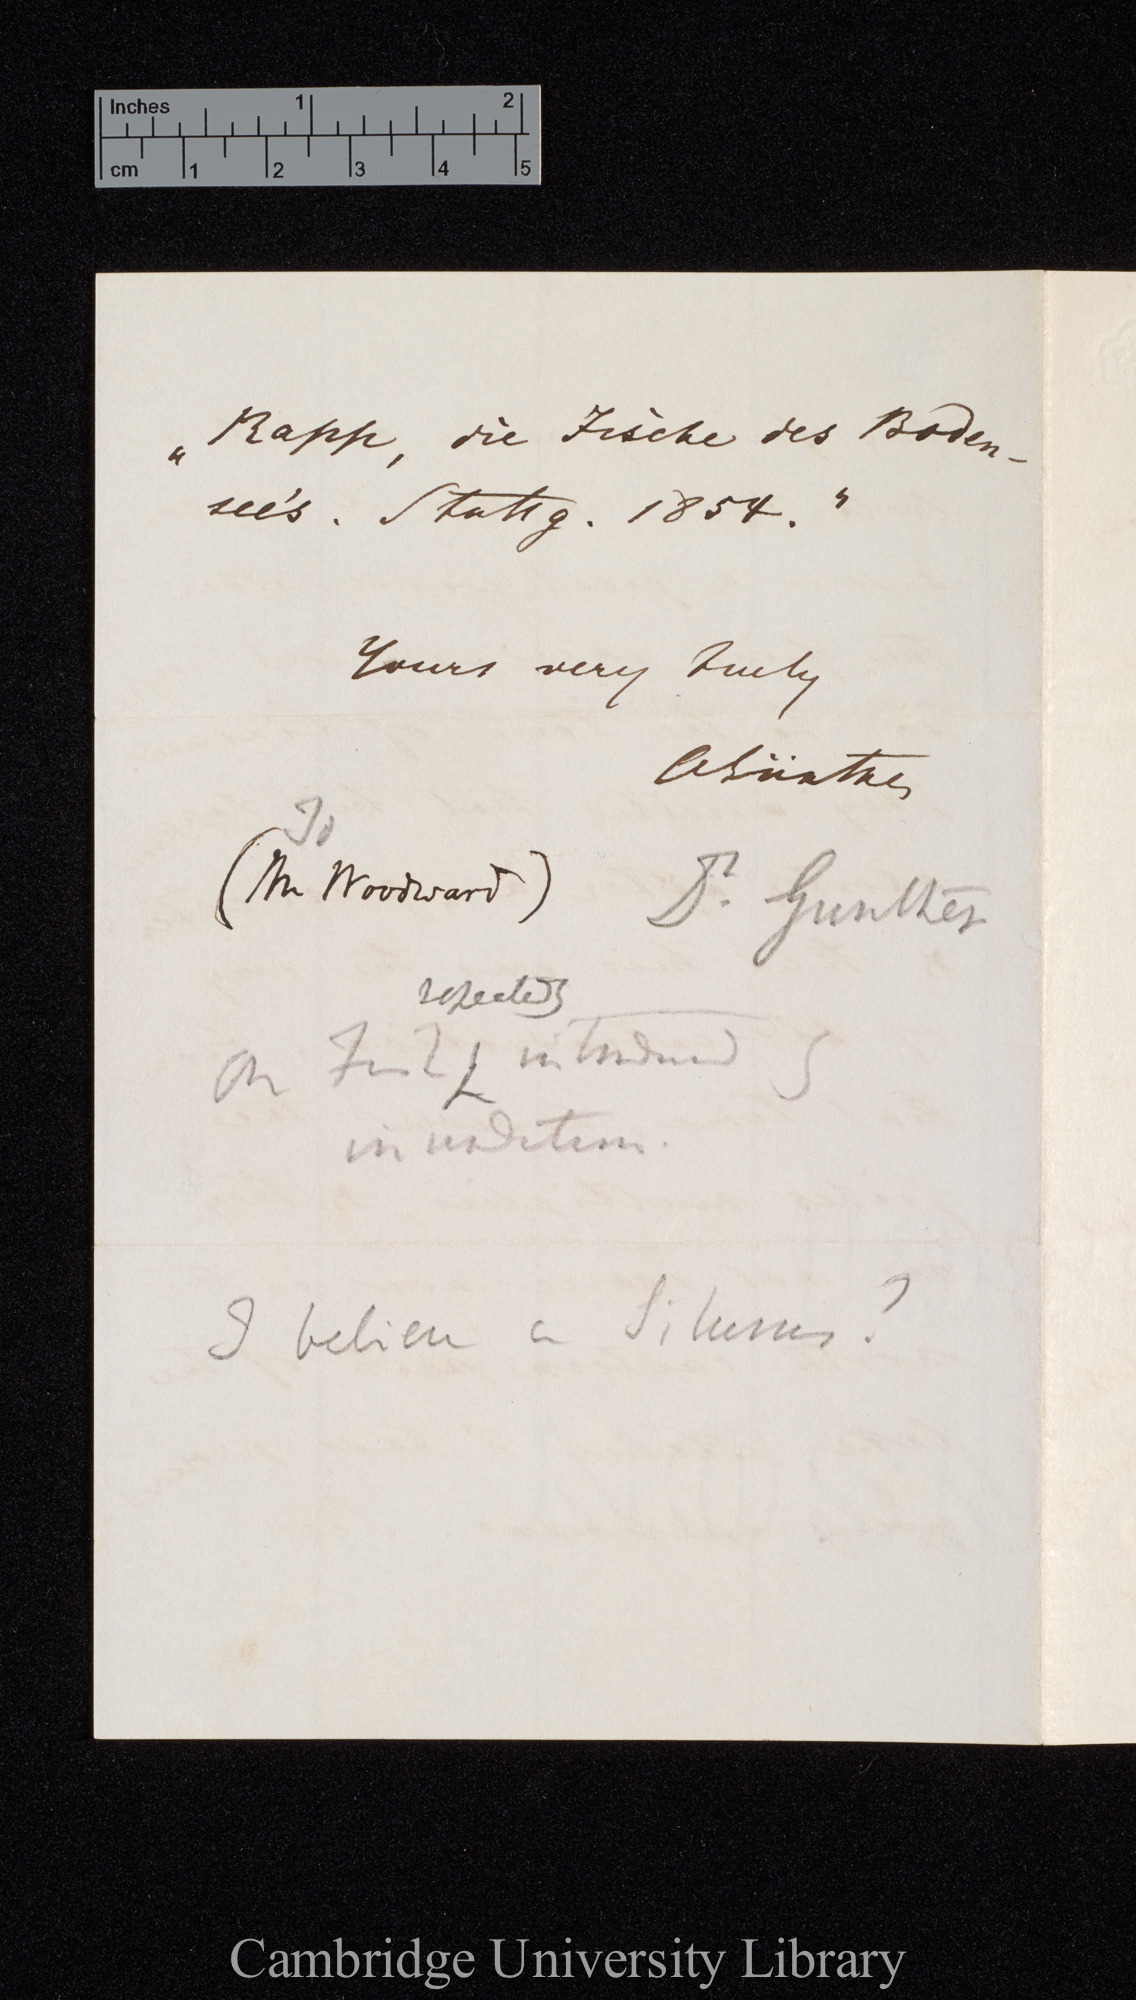 Inches 1 2
cm 1 2 3 4 5
„Rapp, die Fische des Boden-
see's. Stuttg. 1854."
Yours very truly
AGünther
To
(Mr Woodward)
Dr. Gunther
repeatedly
On Fish introduced by
inundation.
I believe a Silurus?
Cambridge University Library